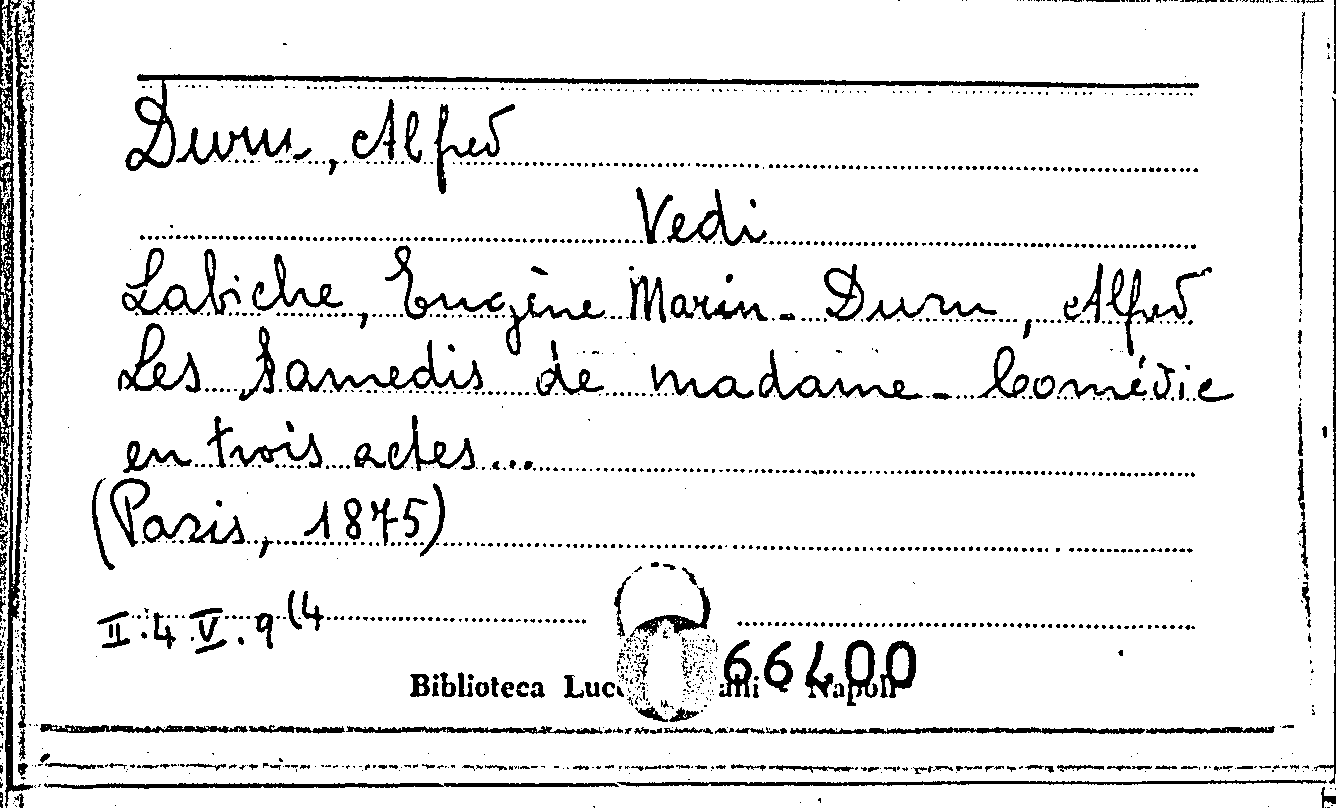 Duru, Alfred
Vedi
Labiche, Eugène Marin - Duru, Alfred
Les Samedis de madame - Comédie
en trois actes...
(Paris, 1875)
II.4.V.9(4
66400
Biblioteca Napoli